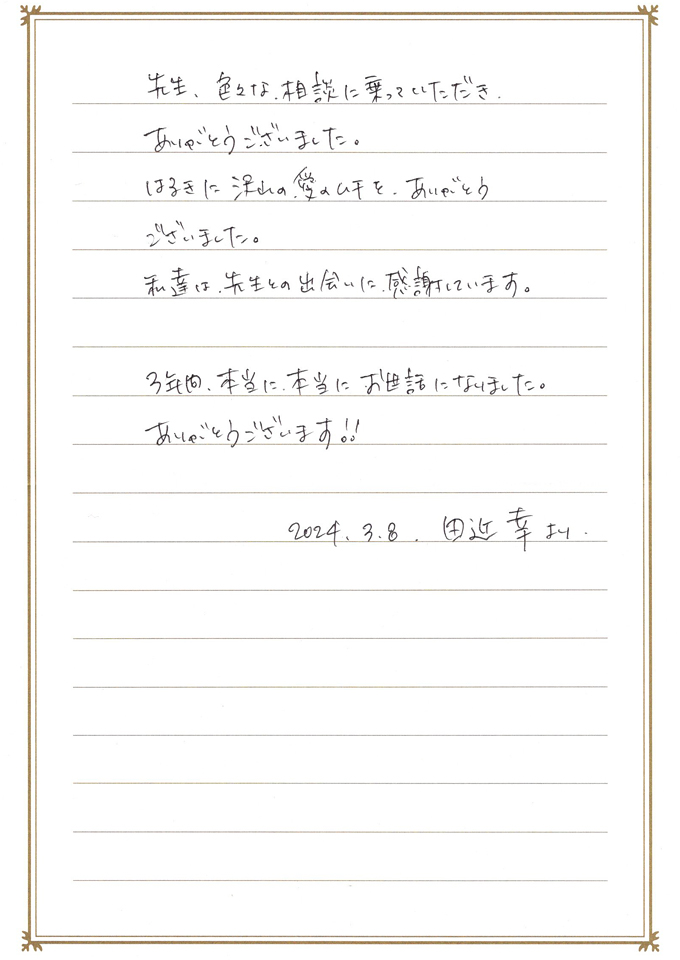 先生、色々な相談に乗っていただき、
ありがとうございました。
はるきに沢山の愛のムチを、ありがとう
ございました。
私達は、先生との出会いに感謝しています。
3年間、本当に、本当にお世話になりました。
ありがとうございます!!
2024.3.8. 田近 幸より.